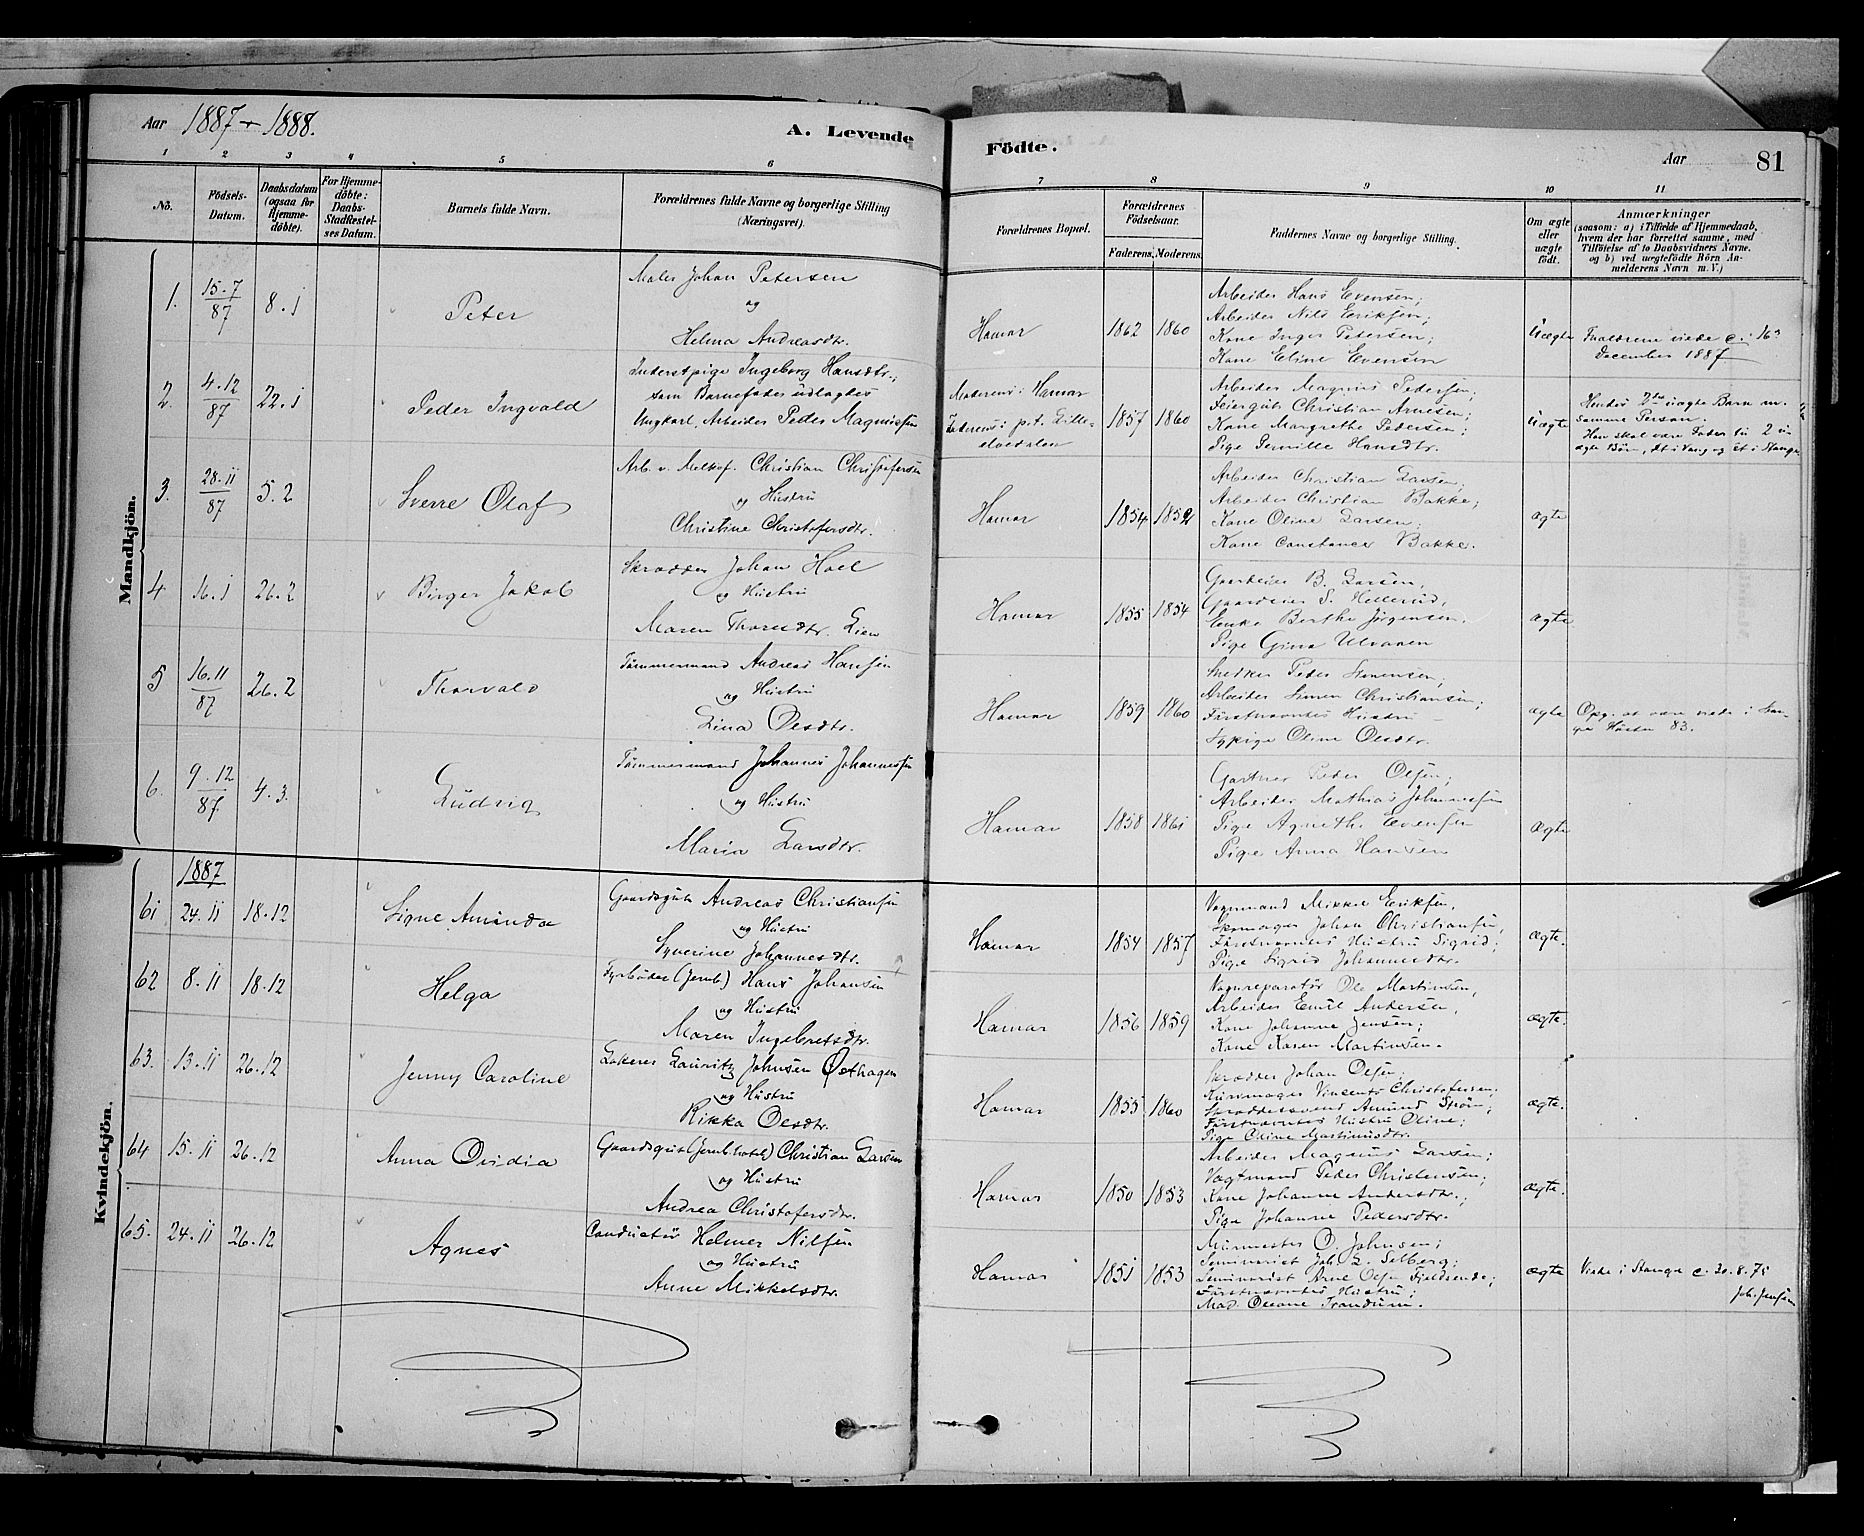 Aar 1887 - 1888.
A. Levende Födte.
Aar
81
1 2 3 4 5 6 7 8 9 10 11
No.
Födsels-Datum.
Daabsdatum (ogsaa for Hjemmedöbte).
For Hjemmedöbte: Daabs-Stadfæstelses Datum.
Barnets fulde Navn.
Forældrenes fulde Navne og borgerlige Stilling (Næringsvei).
Forældrenes Bopæl.
Forældrenes Födselsaar.
Faderens. Moderens.
Faddernes Navne og borgerlige Stilling.
Om ægte eller uægte födt.
Anmærkninger
(saasom: a) i Tilfælde af Hjemmedaab,
hvem der har forrettet samme, med
Tilföielse af to Daabsvidners Navne,
og b) ved uægtefödte Börn An-
melderens Navn m. V.)
Mandkjön.
1. 15.7/87 8.1 Peter
Maler Johan Petersen
og
Helma Andreasdtr.
Hamar 1862 1860
Arbeider Hans Evensen;
Arbeider Nils Eriksen;
Kone Inger Petersen;
Kone Eline Evensen
Uægte
Forældrene viede 16
December 1887
2. 4.12/87 22.1 Peder Ingvald
Inderstpige Ingeborg Hansdtr.;
som Barnefader udlagdes
Ungkarl, Arbeider Peder Magnussen
Moderens: Hamar
Faderens: p.t. Lille-
elvedalen
1857 1860
Arbeider Magnus Pedersen;
Christian Arnesen;
Kone Margrethe Pedersen;
Pige Pernille Hansdtr.
Uægte
Hendes 2det uægte Barn m.
samme Person.
Han skal være Fader til 2 u-
ægte Börn, et i Vang og et i Stange
3. 28.11/87 5.2 Sverre Olaf
Arb. v. Melkef. Christian Christofersen
og Hustru
Christine Christofersdtr.
Hamar 1854 1852
Arbeider Christian Larsen;
Arbeider Christian Bakke;
Kone Oline Larsen;
Kone Constance Bakke.
ægte
4 16.1 26.2 Birger Jakob
Skrædder Johan Hoel
og Hustru
Maren Thorsdtr. Lien
Hamar 1855 1854
Gaardeier B. Larsen,
Gaardeier S. Hellerud,
Enke Berthe Jörgensen.
Pige Gina Ulvanen
ægte
5 16.11/87 26.2 Thorvald
Tömmermand Andreas Hansen
og Hustru
Lina Olesdtr.
Hamar 1859 1860
Snedker Peder Simensen;
Arbeider Simen Christiansen;
Förstnævntes Hustru -
Sypige Oline Olesdtr.
ægte
Opg. at være viede i Stan-
ge Hösten 83.
6. 9.12/87 4.3. Ludvig
Tömmermand Johannes Johannessen
og Hustru
Maria Larsdtr.
Hamar 1858 1861
Gartner Peder Olsen;
Arbeider Mathias Johannessen
Pige Agnethe Evensen
Pige Anna Hansen
Ægte
Kvindekjön.
1887
61 24.11 18.12 Signe Aminda
Gaardsgut Andreas Christiansen
og Hustru
Syverine Johannesdtr.
Hamar 1854 1857
Vognmand Mikkel Eriksen,
Skomager Johan Christiansen,
Förstnævntes Hustru Sigrid;
Pige Sigrid Johannesdtr.
ægte.
62 8.11 18.12 Helga
Fyrböder (Jernb.) Hans Johansen
og Hustru
Maren Ingebretsdtr.
Hamar 1856 1859
Vognreparatör Ole Martinsen,
Arbeider Emil Andersen,
Kone Johanne Jensen;
Kone Karen Martinsen.
ægte.
63. 13.11 26.12 Jenny Caroline
Lakerer Lauritz Johnsen Østhagen
og Hustru
Rikka Olesdtr.
Hamar 1855 1860
Skrædder Johan Olsen;
Vincents Christofersen;
Skræddersvend Amund Spön;
Förstnævntes Hustru Oline;
Pige Oline Martinusdtr.
ægte.
64 15.11 26.12 Anna Ovidia
Gaardsgut (Jernb.hotel) Christian Larsen
og Hustru
Andrea Christofersdtr.
Hamar 1850 1853
Arbeider Magnus Larsen;
Vægtmand Peder Christensen;
Kone Johanne Andersdtr.;
Pige Johanne Pedersdtr.
ægte.
65. 24.11 26.12 Agnes
Conductör Helmer Nilsen
og Hustru
Anne Mikkelsdtr.
Hamar 1851 1853
Murmester O. Johnsen;
Seminarist Joh. L. Selberg;
Seminarist Arne Olsen Fjeldsende;
Förstnævntes Hustru;
Mad. Oleane Trandum.
ægte
Viede i Stange 30.8.71
Joh. Jensen